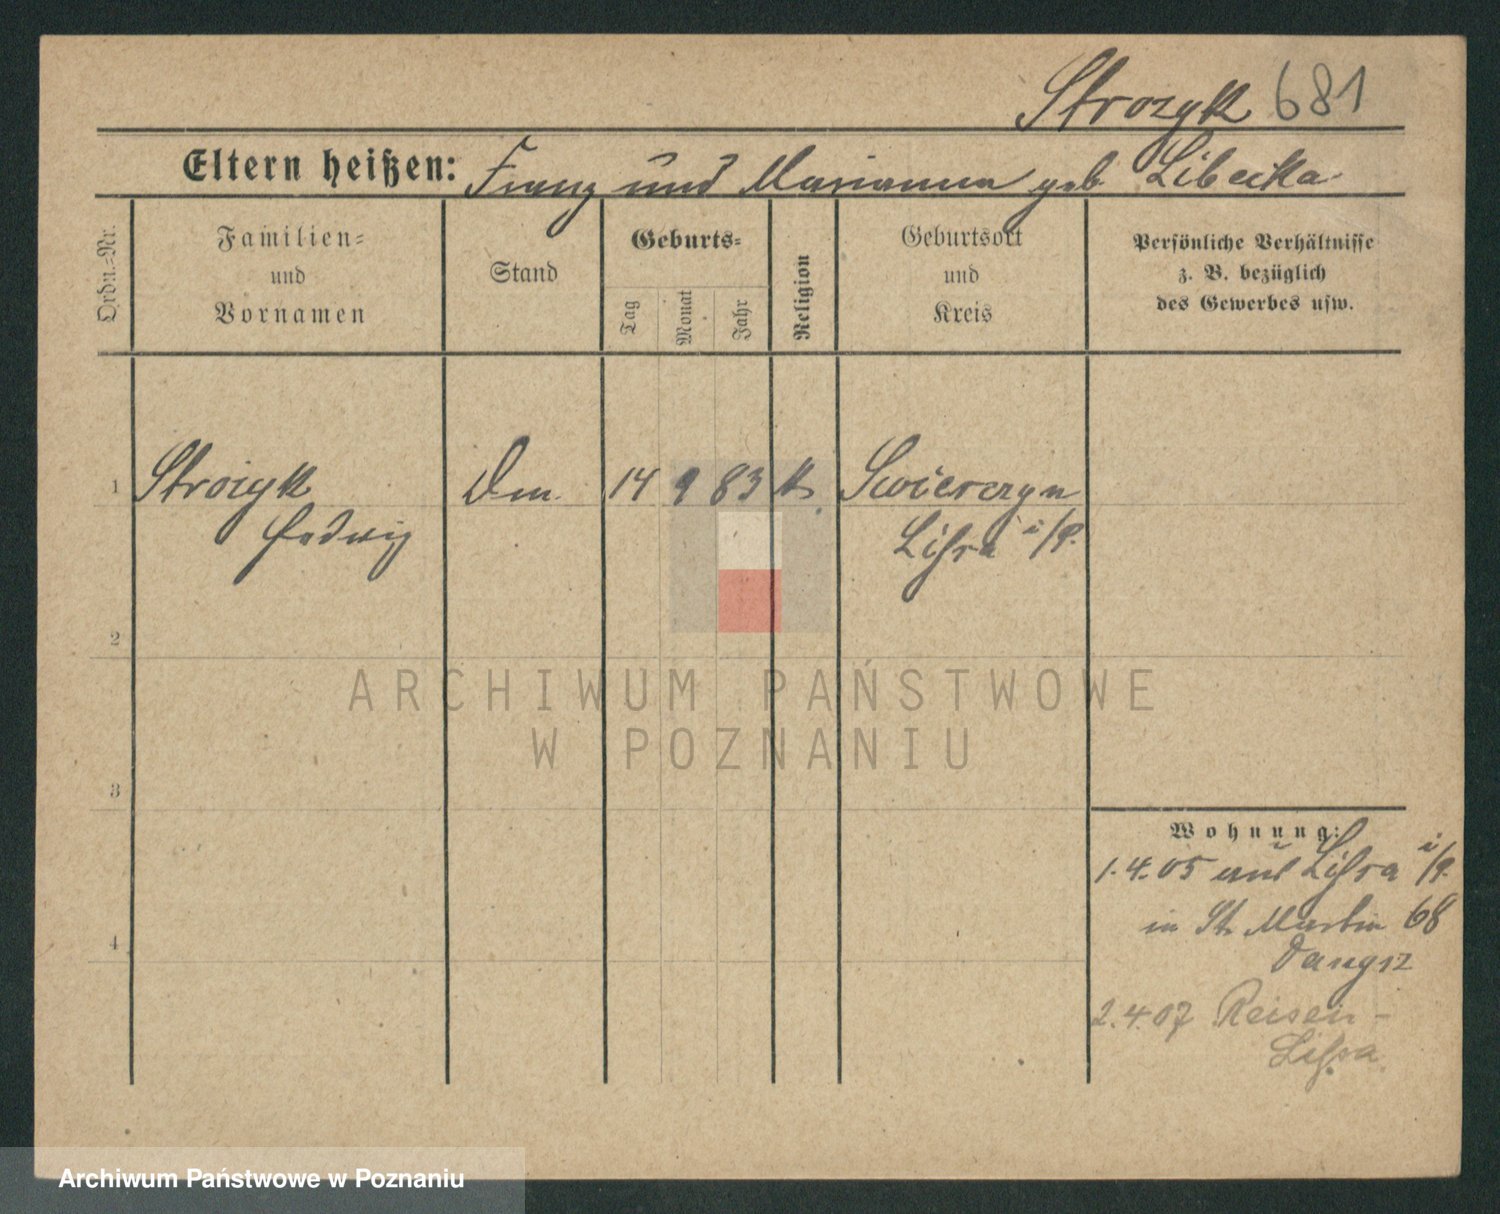 Strozyk 681
Eltern heißen: Franz und Marianna geb. Libecka
Ordn.-Nr.
Familien- und Vornamen
Stand
Geburts-
Tag
Monat
Jahr
Religion
Geburtsort und Kreis
Persönliche Verhältnisse
z. B. bezüglich
des Gewerbes usw.
1 Strozyk Dm. 14 9 83 k. Swierczyn
Hedwig Lissa i/P.
2
3
4
Wohnung:
1.4.05 aus Lissa i/P.
in St. Martin 68
2.4.07 Reisen-
Lissa
ARCHIWUM PAŃSTWOWE
W POZNANIU
Archiwum Państwowe w Poznaniu